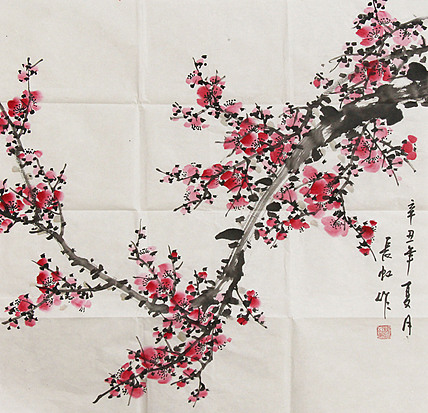 辛丑年夏月
长虹作